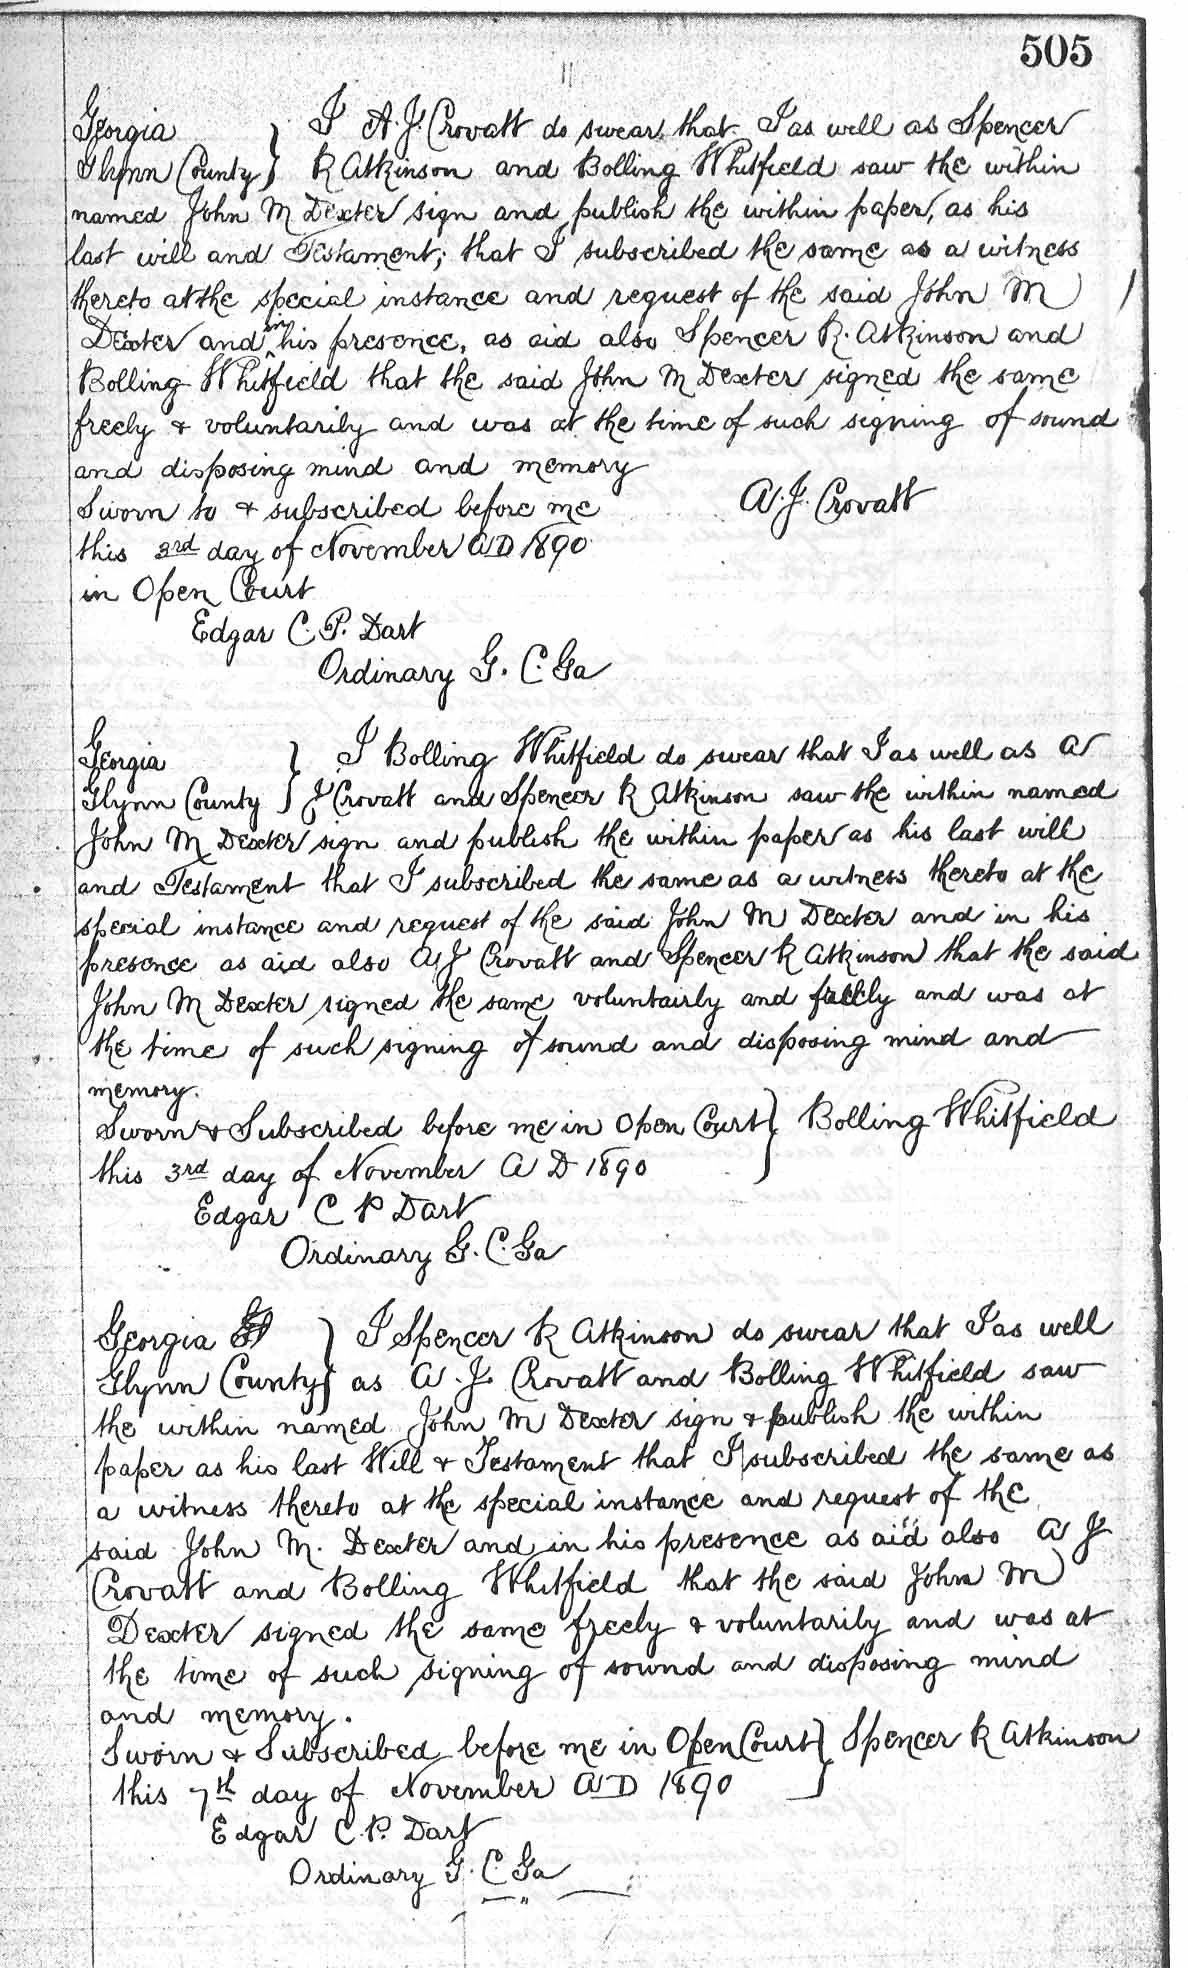 505
Georgia } I A. J. Crovatt do swear, that I as well as Spencer
Glynn County } R Atkinson and Bolling Whitfield saw the within
named John M Dexter sign and publish the within paper, as his
last will and Testament; that I subscribed the same as a witness
thereto at the special instance and request of the said John M
Dexter and in his presence, as did also Spencer R. Atkinson and
Bolling Whitfield that the said John M Dexter signed the same
freely & voluntarily and was at the time of such signing of sound
and disposing mind and memory
Sworn to & subscribed before me A. J. Crovatt
this 3rd day of November AD 1890
in Open Court
Edgar C. P. Dart
Ordinary G. C. Ga
Georgia } I Bolling Whitfield do swear that I as well as A
Glynn County } J Crovatt and Spencer R Atkinson saw the within named
John M Dexter sign and publish the within paper as his last will
and Testament that I subscribed the same as a witness thereto at the
special instance and request of the said John M Dexter and in his
presence as did also A J Crovatt and Spencer R Atkinson that the said
John M Dexter signed the same voluntairly and freely and was at
the time of such signing of sound and disposing mind and
memory.
Sworn & Subscribed before me in Open Court } Bolling Whitfield
this 3rd day of November A D 1890
Edgar C P Dart
Ordinary G. C. Ga
Georgia } I Spencer R Atkinson do swear that I as well
Glynn County } as A. J. Crovatt and Bolling Whitfield saw
the within named John M Dexter sign & publish the within
paper as his last Will & Testament that I subscribed the same as
a witness thereto at the special instance and request of the
said John M. Dexter and in his presence as did also A J
Crovatt and Bolling Whitfield that the said John M
Dexter signed the same freely & voluntarily and was at
the time of such signing of sound and disposing mind
and memory.
Sworn & Subscribed before me in Open Court } Spencer R Atkinson
this 7th day of November AD 1890
Edgar C. P. Dart
Ordinary G. C. Ga